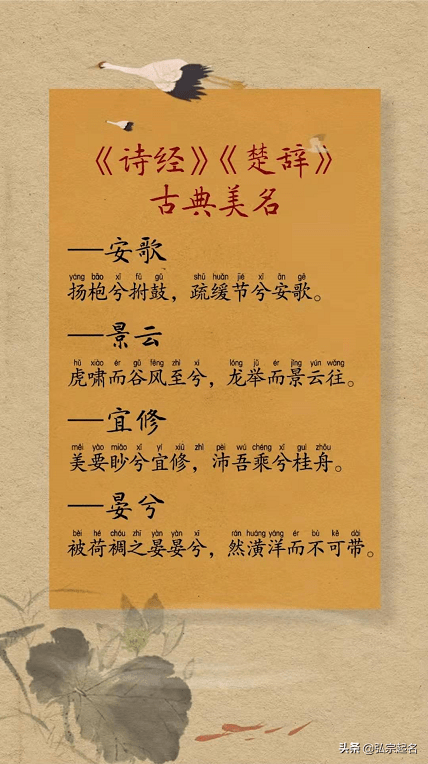 《诗经》《楚辞》
古典美名
—安歌
yáng bāo xī fǔ gǔ shū huǎn jié xī ān gē
扬枹兮拊鼓，疏缓节兮安歌。
—景云
hǔ xiào ér gǔ fēng zhì xī lóng jǔ ér jǐng yún wǎng
虎啸而谷风至兮，龙举而景云往。
—宜修
měi yào miǎo xī yí xiū zhì pèi wú chéng xī guì zhōu
美要眇兮宜修，沛吾乘兮桂舟。
—晏兮
bèi hé chóu zhī yàn yàn xī rán huáng yáng ér bù kě dài
被荷裯之晏晏兮，然潢洋而不可带。
头条 @弘宗起名